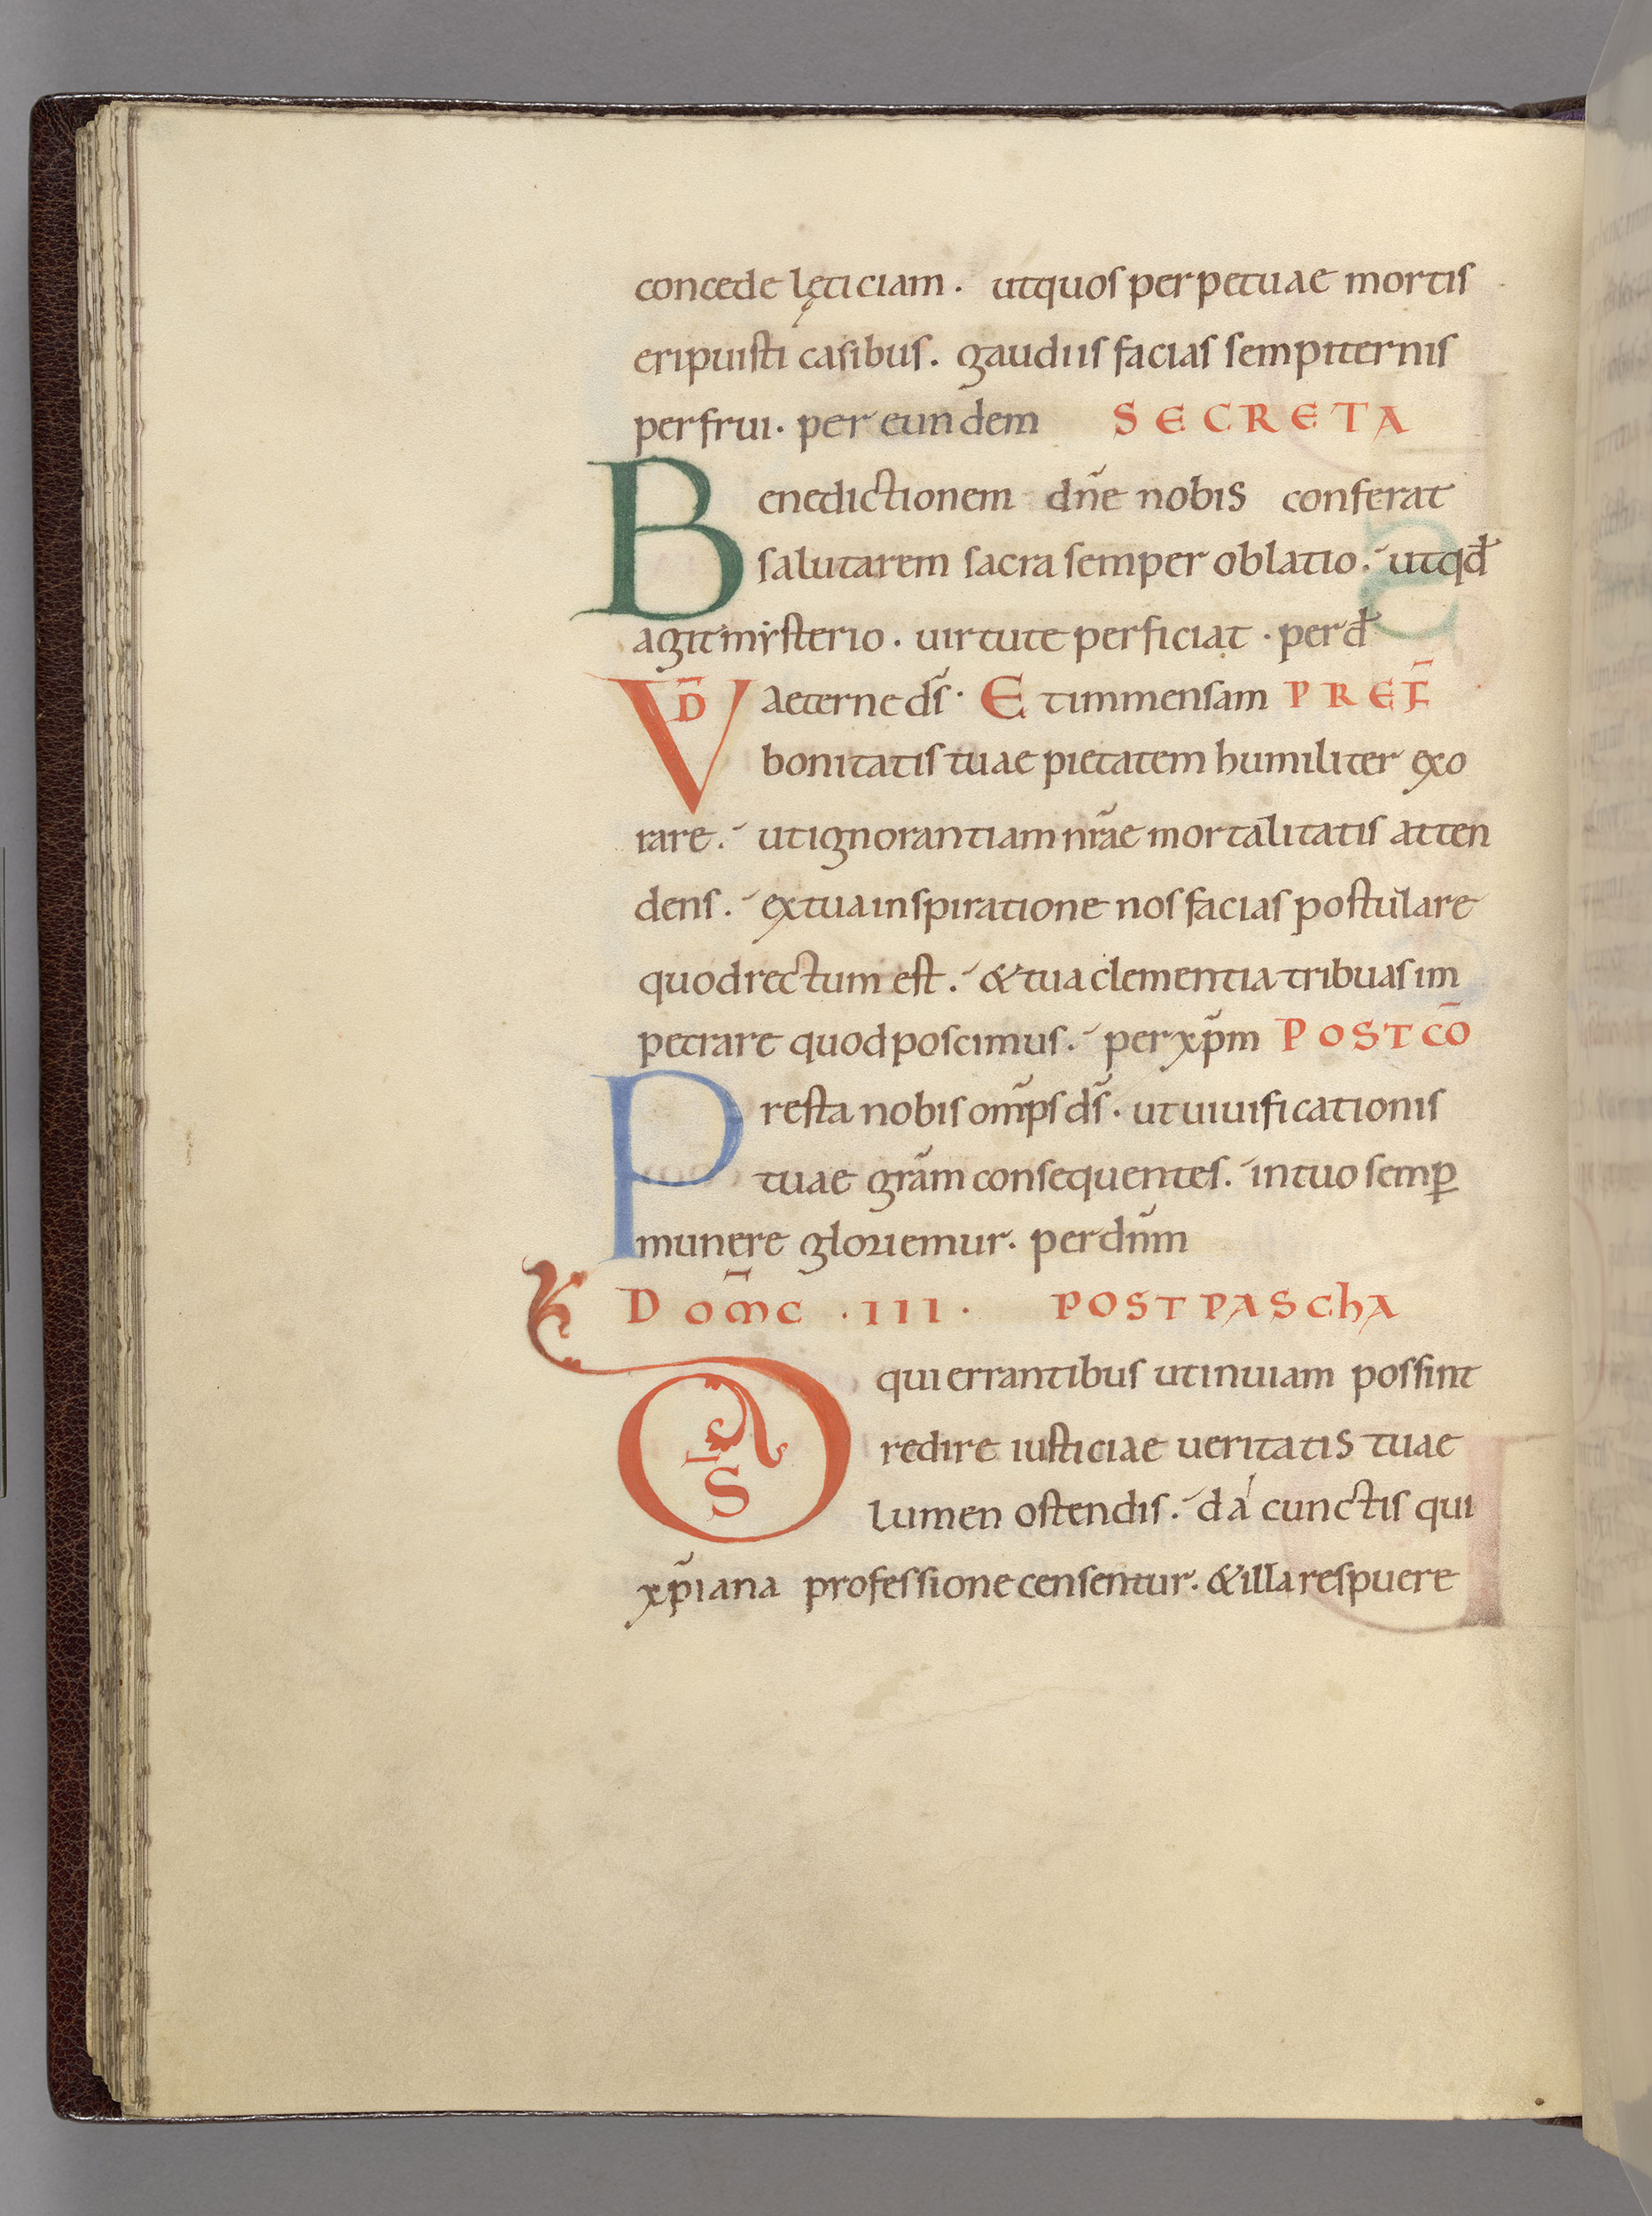 concede lęticiam. utquos perpetuae mortis
eripuisti casibus. gaudiis facias sempiternis
perfrui. per eundem SECRETA
Benedictionem dñe nobis conferat
salutarem sacra semper oblatio. utqđ
agit mẏsterio. uirtute perficiat. perđ
VD̄ aeterne ds̄. Et immensam PREF̄
bonitatis tuae pietatem humiliter exo
rare. ut ignorantiam nr̄ae mortalitatis atten
dens. ex tua inspiratione nos facias postulare
quod rectum est. & tua clementia tribuas im
petrare quod poscimus. per xp̄m POST CŌ
Presta nobis om̄ps ds̄. ut uiuificationis
tuae gr̄am consequentes. in tuo semꝑ
munere gloriemur. per dn̄m
DOM̄C .III. POST PASChA
DS qui errantibus ut in uiam possint
redire iusticiae ueritatis tuae
lumen ostendis. dá cunctis qui
xp̄iana professione censentur. & illa respuere